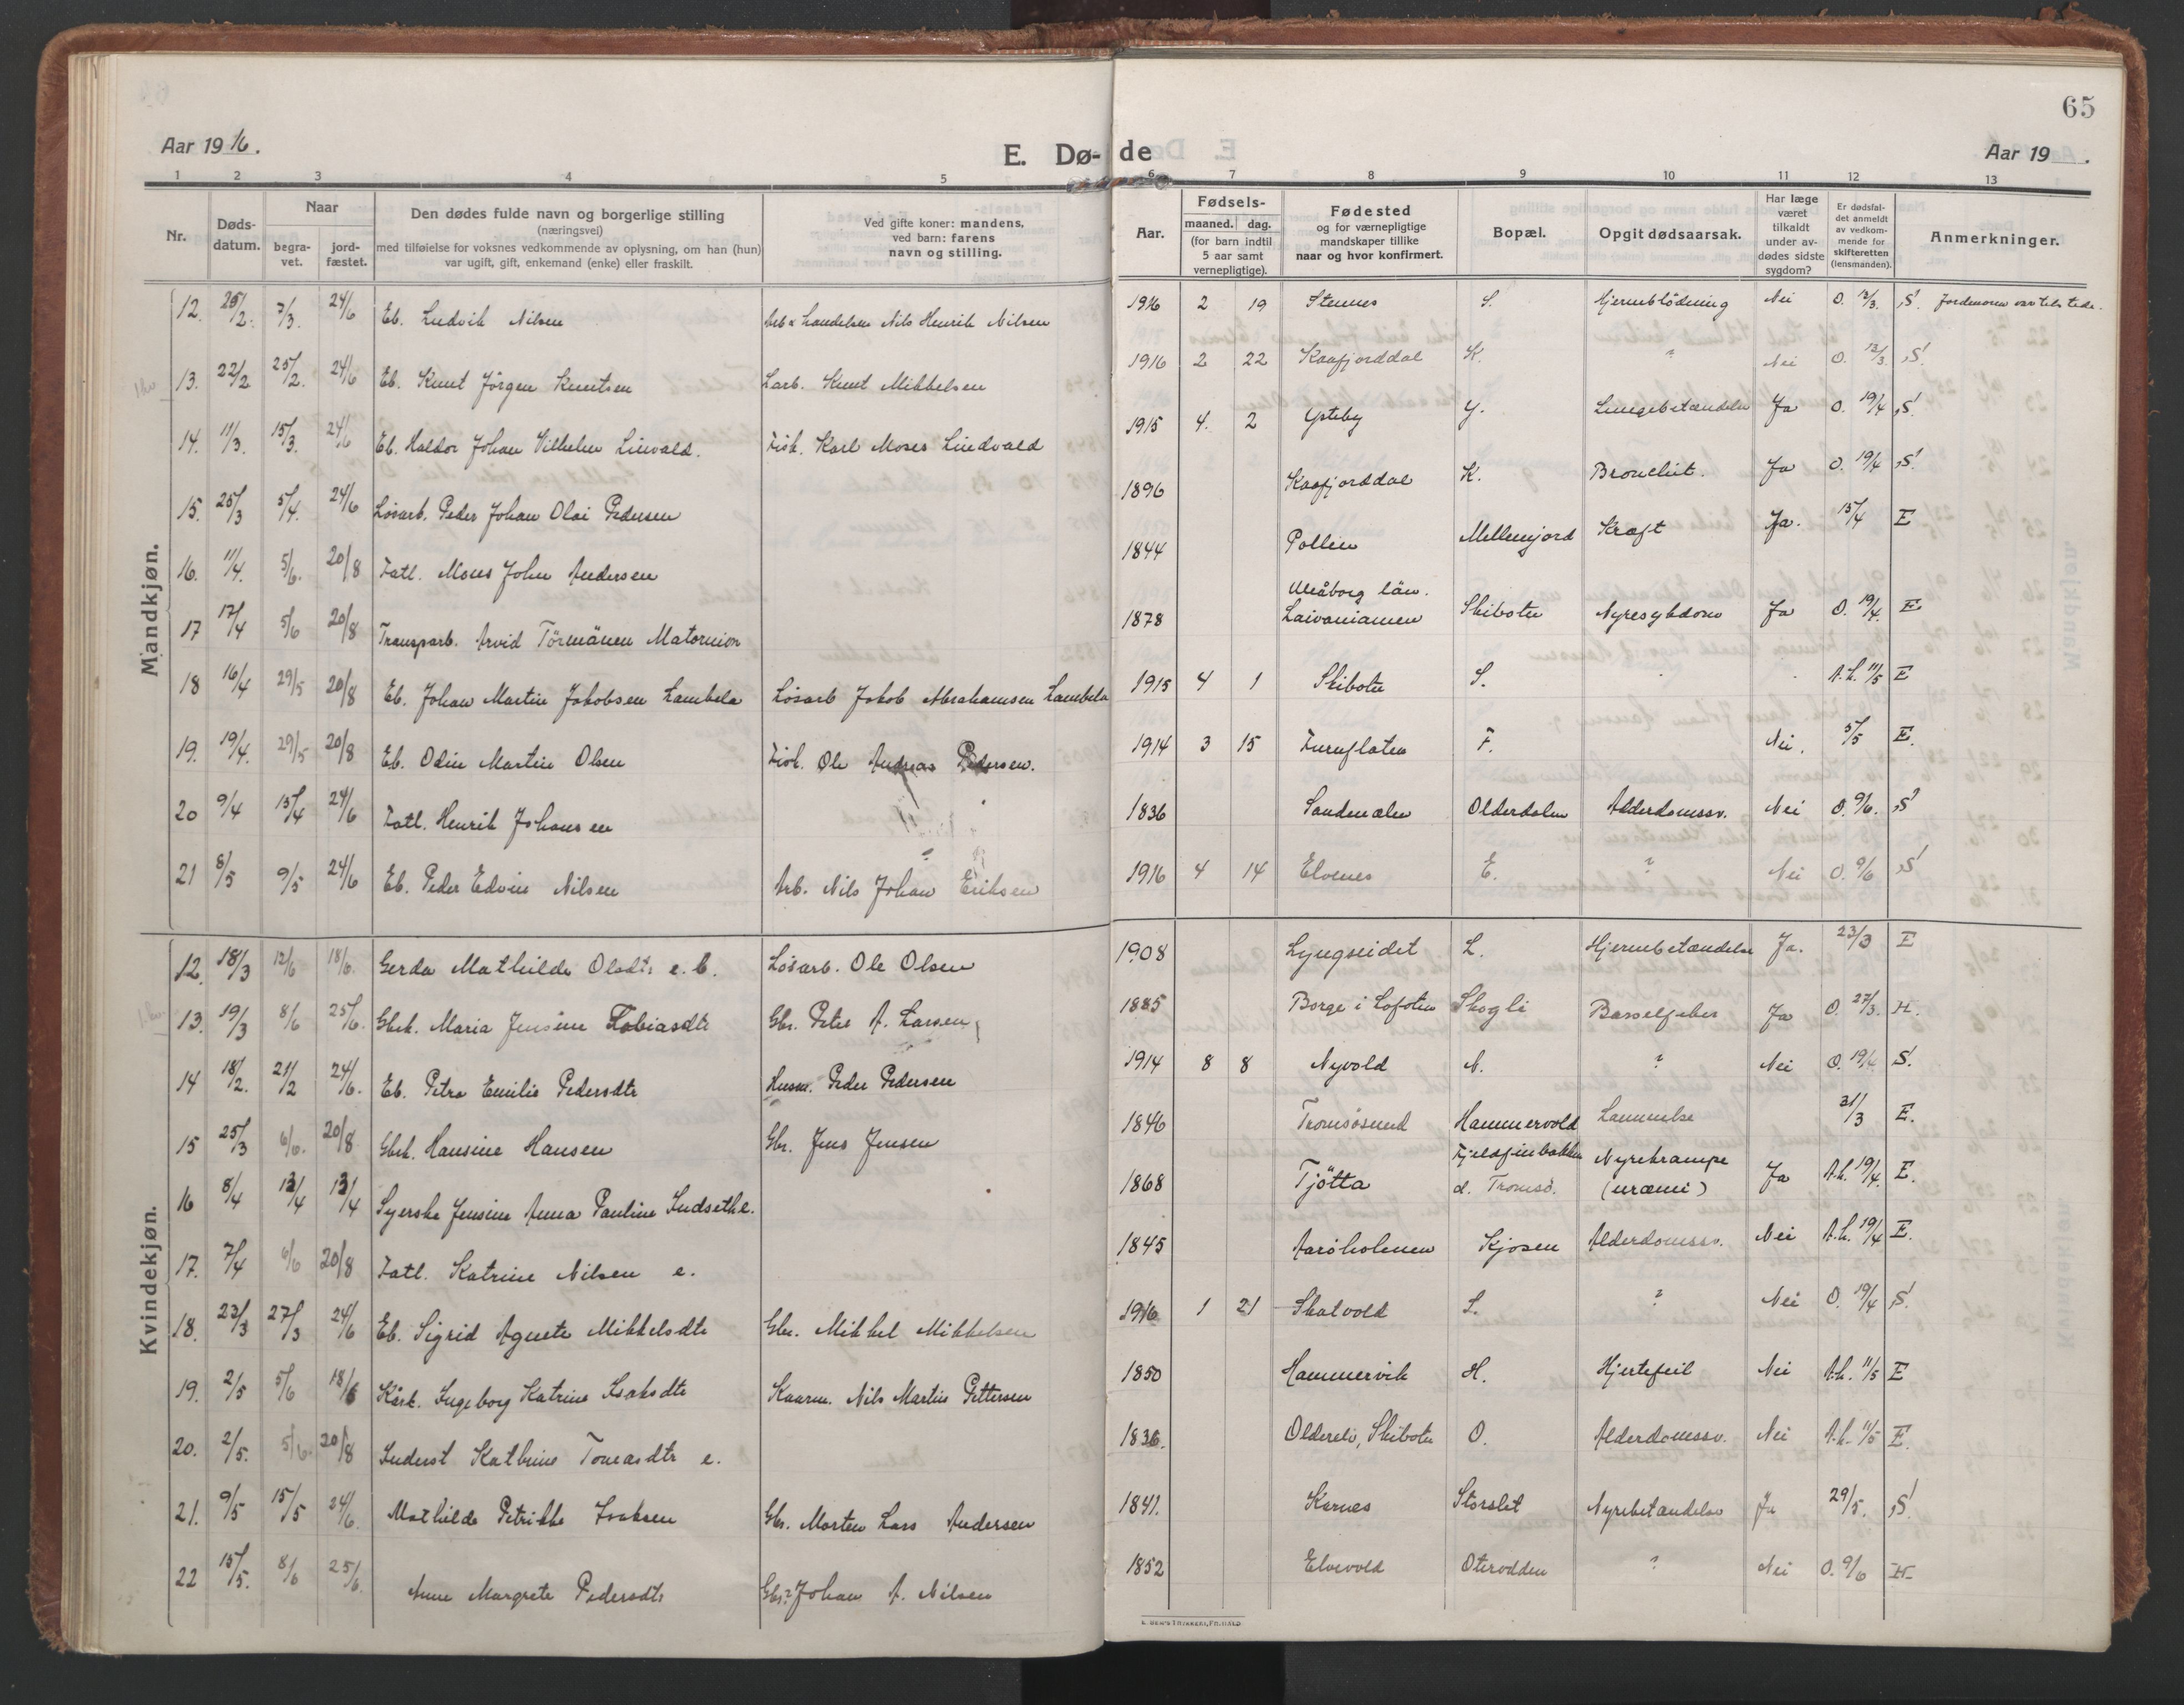 65
Aar 1916.
E. Dø-de
Aar 19 .
1 2 3 4 5 6 7 8 9 10 11 12 13
Nr.
Døds-datum.
Naar
begra-vet.
jord-fæstet.
Den dødes fulde navn og borgerlige stilling
(næringsvei)
med tilføielse for voksnes vedkommende av oplysning, om han (hun)
var ugift, gift, enkemand (enke) eller fraskilt.
Ved gifte koner: mandens,
ved barn: farens
navn og stilling.
Aar.
Fødsels-
maaned. dag.
(for barn indtil
5 aar samt
vernepligtige).
Fødested
og for værnepligtige
mandskaper tillike
naar og hvor konfirmert.
Bopæl.
Opgit dødsaarsak.
Har læge
været
tilkaldt
under av-
dødes sidste
sygdom?
Er dødsfal-
det anmeldt
av vedkom-
mende for
skifteretten
(lensmanden).
Anmerkninger.
Mandkjøn.
12. 25/2. 7/3. 24/6 Eb. Ludvik Nilsen Nils Henrik Nilsen 1916 2 19 Stennes S. Hjerneblödning Nei O. 13/3. S. Jordemoren var tilstede.
13. 22/2 25/2. 24/6 Eb. Knut Jörgen Knutsen Larb. Knut Mikkelsen 1916 2 22 Kaafjorddal K. ? Nei O. 13/3. S.
14. 11/3. 15/3. 24/6 Eb. Haldor Johan Vilhelm Linvald. Fisk. Karl Moses Lindvald 1915 4. 2 Ysteby Y. Lungebetændelse Ja O. 19/4 S.
15. 25/3 5/4. 24/6 Løsarb. Peder Johan Olai Pedersen 1896 Kaafjorddal K. Bronchit. Ja O. 19/4 S.
16. 11/4. 5/6. 20/8 Fatl. Mons John Andersen 1844 Pollen Mellemjord Kræft Ja. 15/4 E
17 17/4 5/6 20/8 Transparb. Arvid Törmänen Matornion 1878 Uleåborg län. Laivaniamen Skibotn Nyresykdom Ja O. 19/4. E
18 16/4 29/5 20/8 Eb. Johan Martin Jakobsen Lambela Løsarb Jakob Abrahamsen Lambela 1915 4 1 Skibotn S. A.L. 11/5 E
19. 19/4. 29/5 20/8 Eb. Odin Martin Olsen Fisk. Ole Andreas Pedersen. 1914 3 15 Furuflaten F. Nei. 5/5 E.
20 9/4 15/4 24/6 Fatl. Henrik Johansen 1836 Sandenælen Olderdalen Alderdomssv. Nei O. 9/6. S
21 8/5 9/5 24/6 Eb. Peder Edvin Nilsen Arb. Nils Johan Eriksen 1916 4 14 Elvenes E. ? Nei O. 9/6 S
Kvindekjøn.
12. 18/3 12/6 18/6. Gerda Mathilde Olsdtr e. b. Løsarb. Ole Olsen 1908 Lyngseidet L. Hjernebetændelse Ja. 23/3 E
13. 19/3 8/6 25/6. Gbrk. Maria Jensine Tobiasdtr Gbr. Peter A. Larsen 1885 Borge i Lofoten Skogli Barselfeber Ja O. 27/3. H.
14 18/2. 21/2 24/6. Eb. Petra Emilie Pedersdtr Husm. Peder Pedersen 1914 8 8 Nyvold N. ? Nei O. 19/4 S.
15 25/3 6/6. 20/8 Gbrk. Hansine Hansen Gbr. Jens Jensen 1846 Tromsösund Hammervold Lammelse 31/3 E.
16 8/4 13/4 13/4 Syerske Jensine Anna Pauline Indseth e. 1868 Tjötta d. Tromsö. Nyrekrampe (uræmi) Ja A.L. 19/4. E.
17. 7/4 6/6 20/8 Fatl. Katrine Nilsen e. 1845 Aaröholmen Kjosen Alderdomssv. Nei A.L. 19/4 E.
18. 23/3 27/3 24/6 Eb. Sigrid Agnete Mikkelsdtr Gbr. Mikkel Mikkelsen 1916 1 21 Skatvold S. ? Nei O. 19/4 S.
19. 2/5 5/6 18/6 Kårk. Ingeborg Katrine Isaksdtr Kaarm. Nils Martin Pettersen 1850 Hammervik H. Hjertefeil Nei A.L. 11/5 E
20. 2/5. 5/6. 20/8 Inderst Kathrine Tomasdtr e. 1836. Olderelv, Skibotn O. Alderdomssv. Nei A.L. 11/5 E.
21. 9/5 15/5 24/6. Mathilde Petrikke Isaksen Gbr. Morten Lars Andersen 1841. Karnes Storslet Nyrebetændelse Ja 29/5. S.
22 15/5. 8/6 25/6. Anne Margrete Pedersdtr Gbr. Johan A. Nilsen 1852 Elvevold Oterodden ? Nei O. 9/6 H